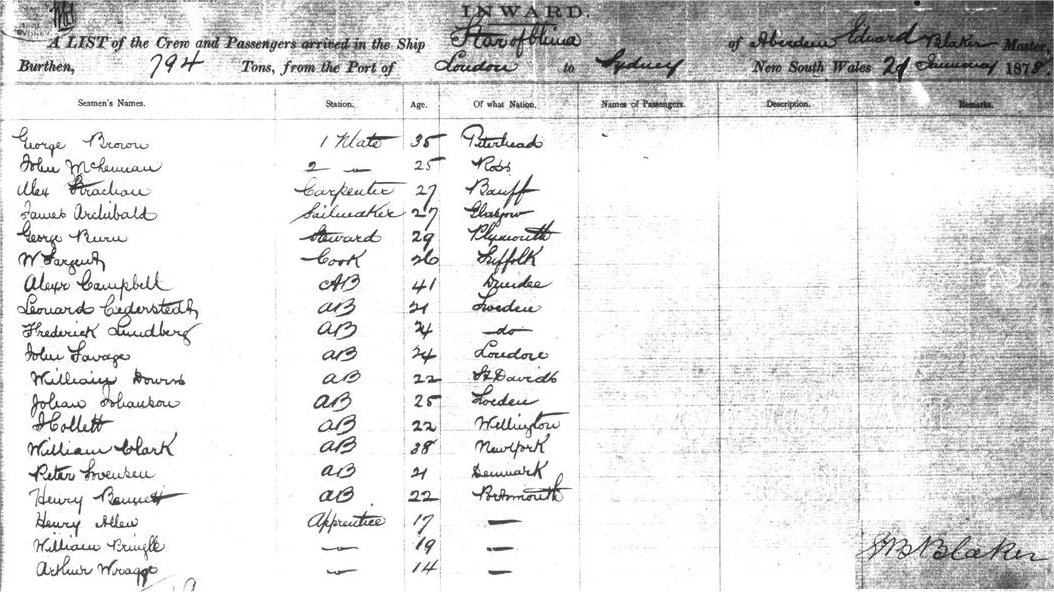 INWARD.
A LIST of the Crew and Passengers arrived in the Ship Star of China of Aberdeen Edward Blaker Master,
Burthen, 794 Tons, from the Port of London to Sydney New South Wales 21 January 1878.
Seamen's Names. Station. Age. Of what Nation. Names of Passengers. Description. Remarks.
George Brown 1 Mate 35 Peterhead
John McKennan 2 — 25 Ross
Alex Strachan Carpenter 27 Banff
James Archibald Sailmaker 27 Glasgow
George Burn Steward 29 Plymouth
W Sargent Cook 26 Suffolk
Alexr Campbell AB 41 Dundee
Leonard Cederstedt AB 21 Sweden
Frederick Lundberg AB 24 — do
John Savage AB 24 London
William Downs AB 22 St Davids
Johan Johanson AB 25 Sweden
J Collett AB 22 Wellington
William Clark AB 38 New York
Peter Svensen AB 21 Denmark
Henry Bennett AB 22 Portsmouth
Henry Allen Apprentice 17 —
William Pringle — 19 —
Arthur Wragge — 14 —
E B Blaker